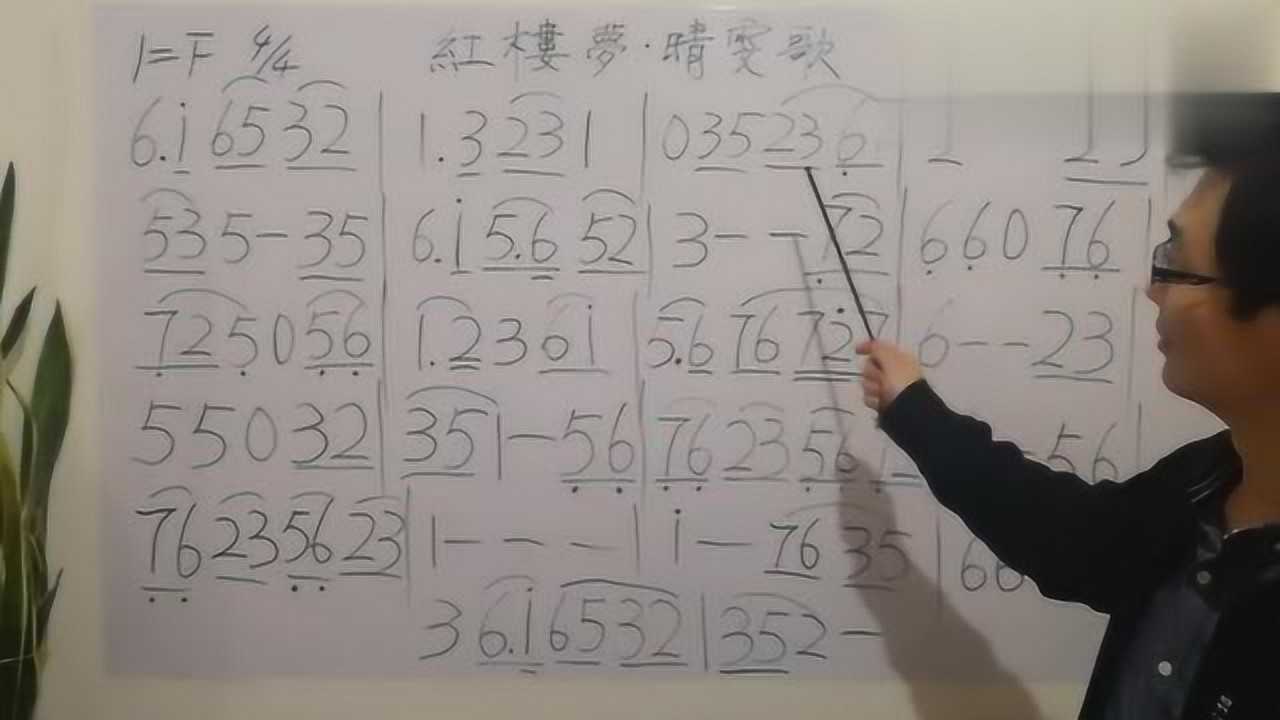 1=F 4/4 紅樓夢·晴雯歌
6.i 65 32 | 1.3 23 1 | 035 23 6 | 1
53 5- 35 | 6.i 5.6 52 | 3-- 72 | 6 6 0 76 |
72 5 0 56 | 1.2 3 6i | 5.6 76 727 | 6--23 |
5 5 0 32 | 35 1-56 | 76 23 56 56 |
76 23 56 23 | 1--- | i-76 35 | 66
3 6.i 65 32 | 35 2-